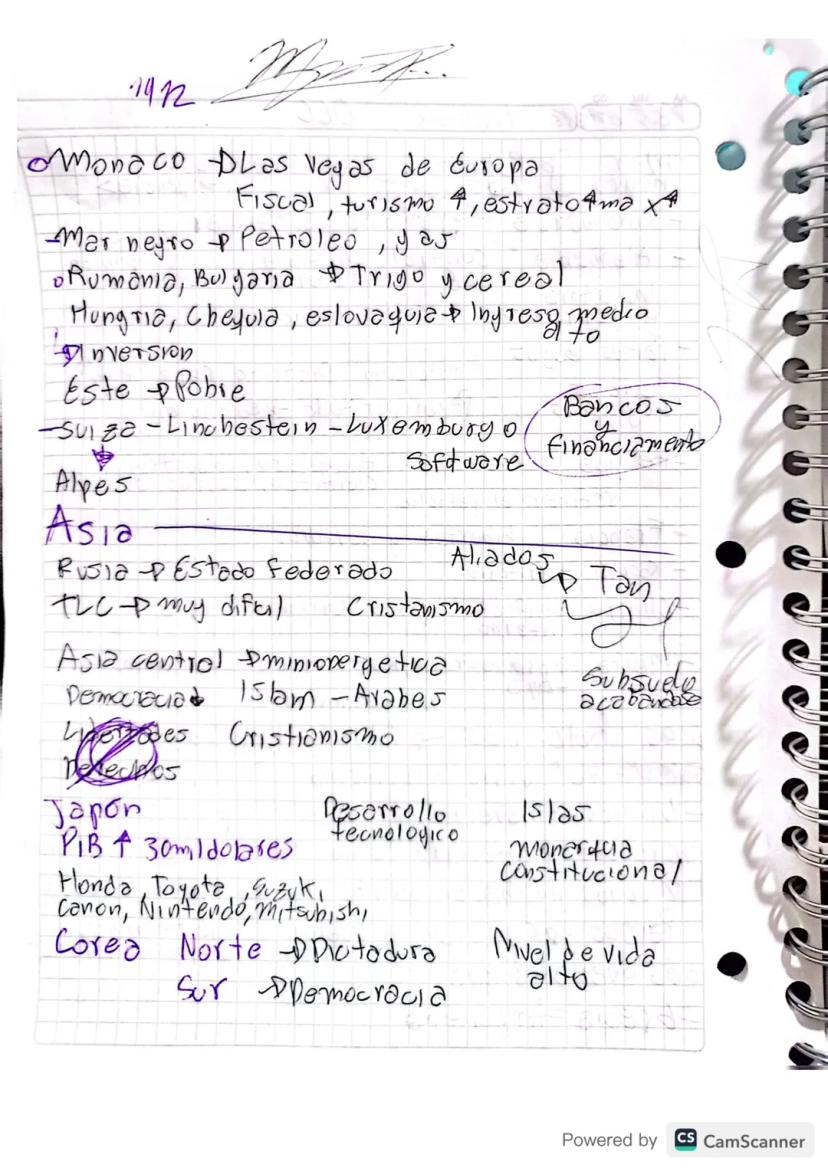 Monaco → Las Vegas de Europa
Fiscal, turismo ↑, estrato
-Mar negro → Petroleo, gas
Rumania, Bulgaria → Trigo y cereal
Hungria, Chequia, eslovaquia → Ingreso medio
alto
→ Inversion
Este → Pobre
-Suiza - Linchestein - Luxemburgo
Software
Bancos
y
financiamento
Alpes
Asia
Rusia → Estado Federado
Aliados → Tan
TLC → muy dificil Cristanismo
Asia central →
Subsuelo
acabandose
Democracia Islam - Arabes
Libertades Cristianismo
Derechos
Japón Desarrollo
tecnologico
Islas
PIB ↑ 30mil dolares
monarquia
constitucional
Honda, Toyota, Suzuki,
Canon, Nintendo, Mitsubishi
Corea Norte → Dictadura
Sur → Democracia
Nivel de vida
alto
Powered by CS CamScanner